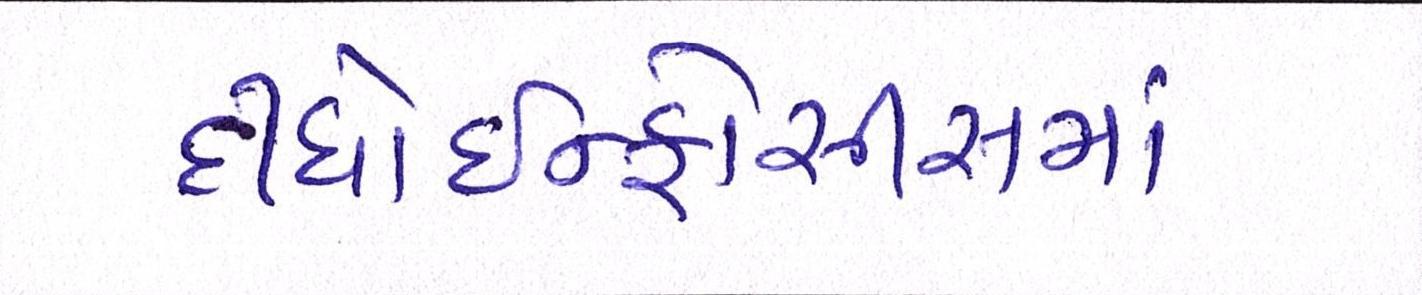 દીધોઈન્ફોસીસમાં